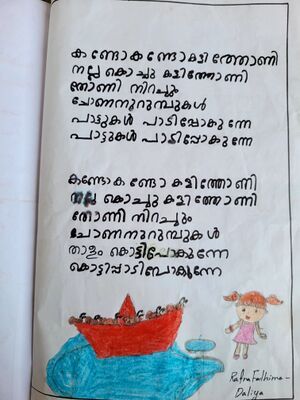 കണ്ടോകണ്ടോകളിത്തോണി
നല്ല കൊച്ചു കളിത്തോണി
തോണി നിറച്ചും
ചോണനുറുമ്പുകൾ
പാട്ടുകൾ പാടിപ്പോകുന്നേ
പാട്ടുകൾ പാടിപ്പോകുന്നേ
കണ്ടോകണ്ടോ കളിത്തോണി
നല്ല കൊച്ചു കളിത്തോണി
തോണി നിറച്ചും
ചോണനുറുമ്പുകൾ
താളം കൊട്ടിപോകുന്നേ
കൊട്ടിപ്പാടിപോകുന്നേ
Rafna Fathima-
Daliya